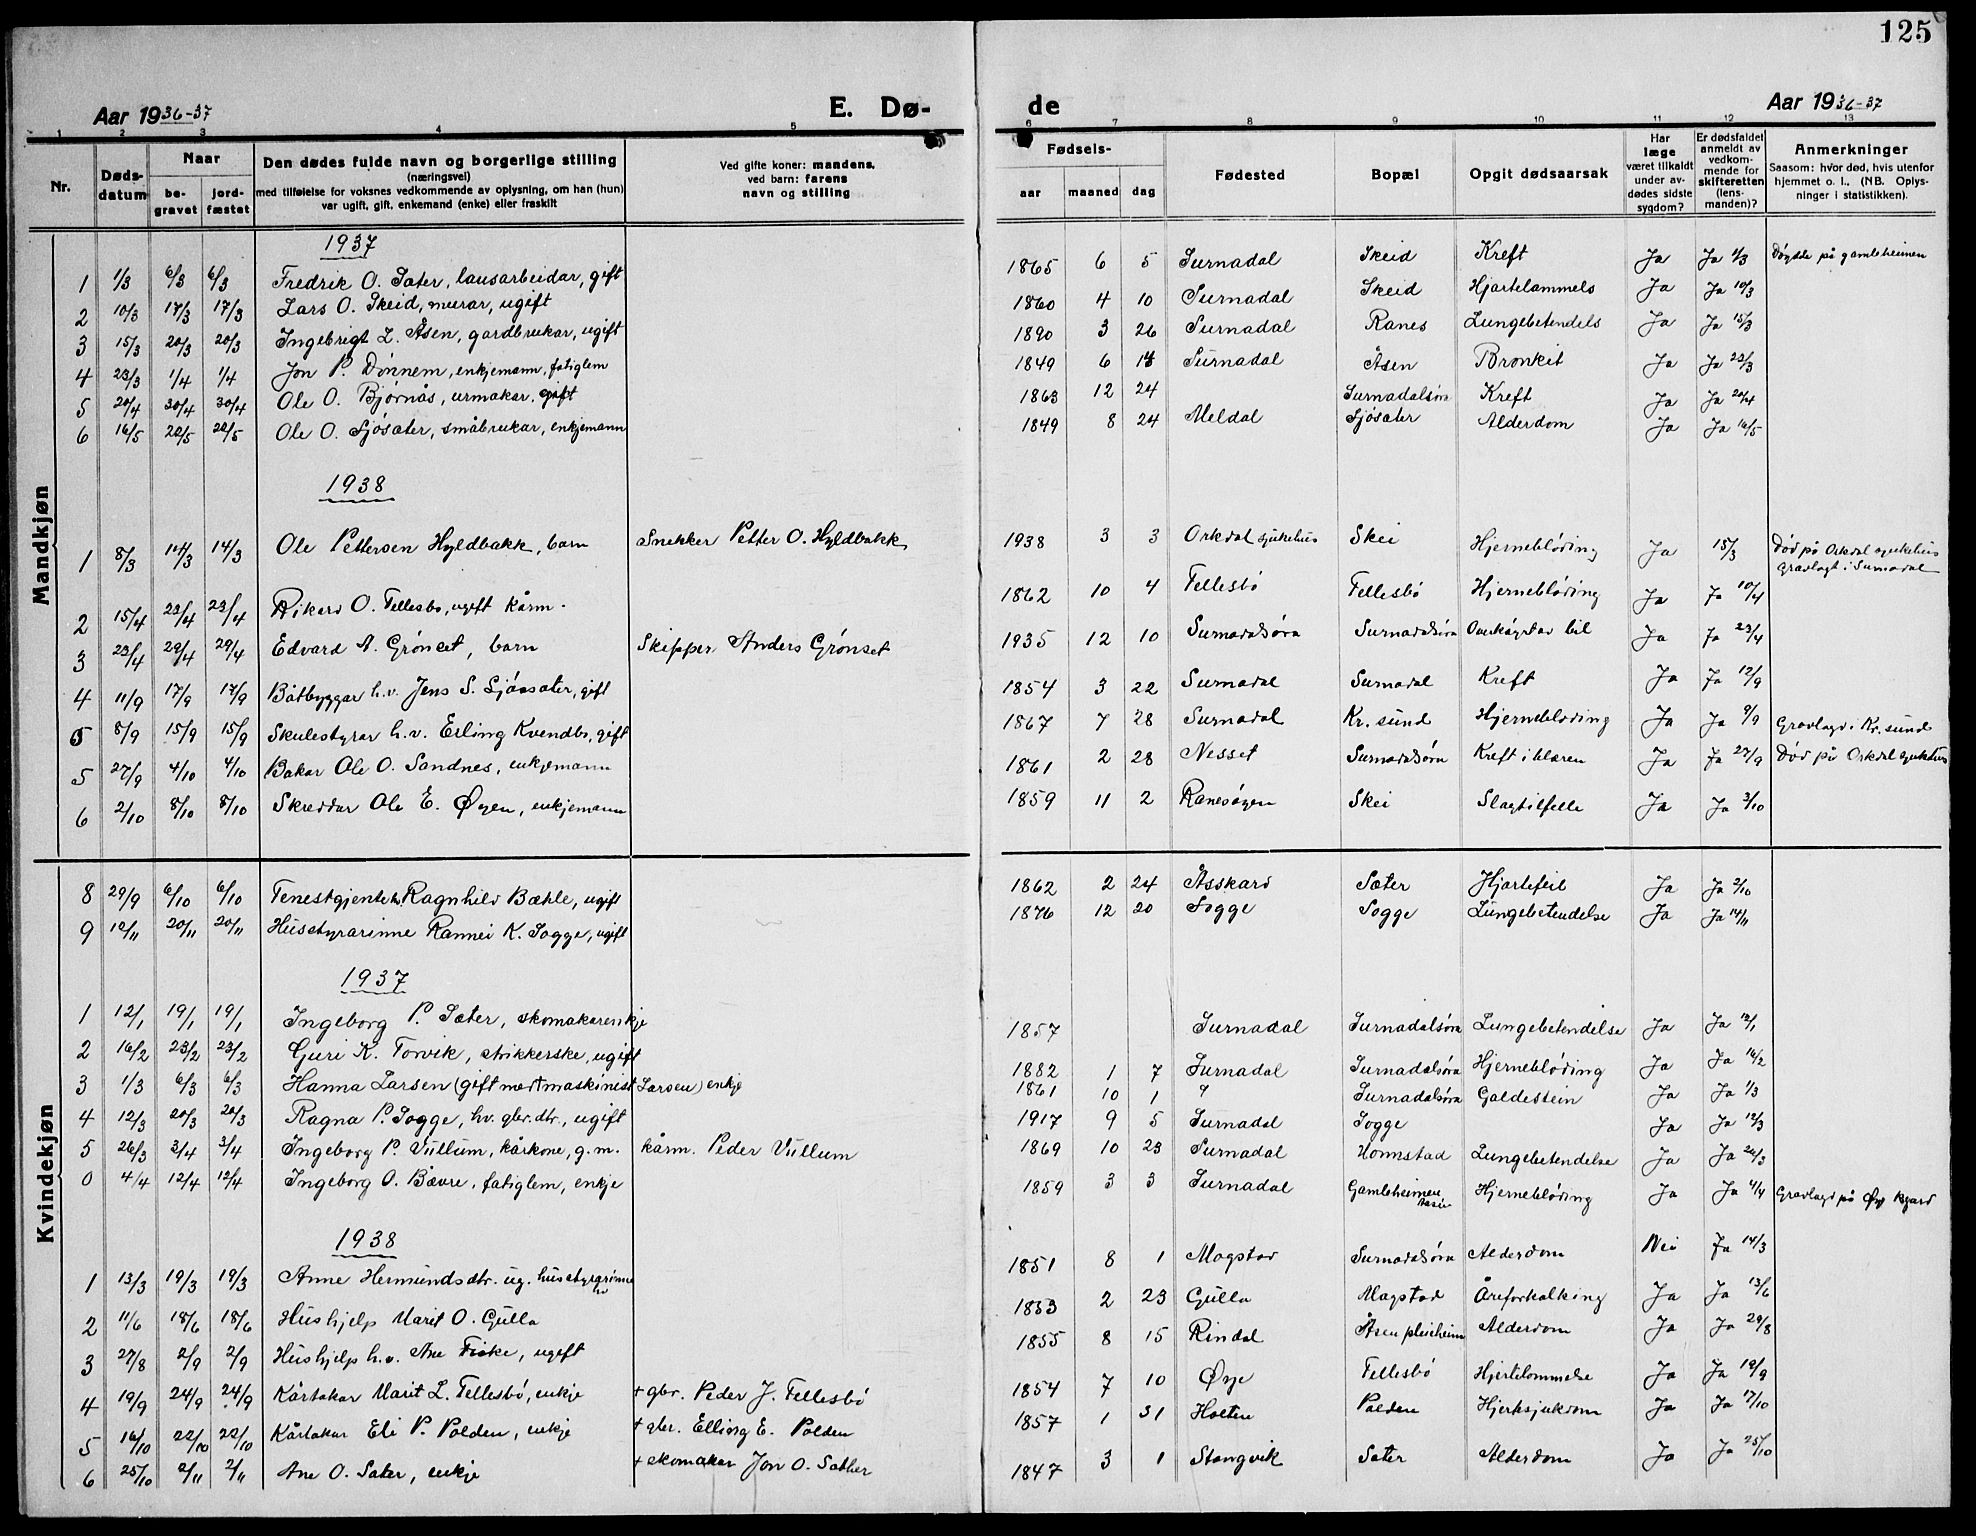 125
Aar 1936-37 E. Dø- de Aar 1936-37
1 2 3 4 5 6 7 8 9 10 11 12 13
Nr. Døds-datum Naar be-gravet jord-fæstet Den dødes fulde navn og borgerlige stilling (næringsvei) med tilføielse for voksnes vedkommende av oplysning, om han (hun) var ugift, gift, enkemand (enke) eller fraskilt Ved gifte koner: mandens, ved barn: farens navn og stilling Fødsels- aar maaned dag Fødested Bopæl Opgit dødsaarsak Har læge været tilkaldt under av-dødes sidste sygdom? Er dødsfaldet anmeldt av vedkom-mende for skifteretten (lens-manden)? Anmerkninger Saasom: hvor død, hvis utenfor hjemmet o. l., (NB. Oplys-ninger i statistikken).
Mandkjøn
1937
1 1/3 6/3 6/3 Fredrik O. Sæter, lausarbeidar, gift 1865 6 5 Surnadal Skeid Kreft Ja Ja 1/3 Døydde på gamleheimen
2 10/3 17/3 17/3 Lars O. Skeid, murar, ugift 1860 4 10 Surnadal Skeid Hjartelammels Ja Ja 10/3
3 15/3 20/3 20/3 Ingebrigt L. Åsen, gardbrukar, ugift 1890 3 26 Surnadal Ranes Lungebetendels Ja Ja 15/3
4 23/3 1/4 1/4 Jon P. Dønnem, enkjemann, fatiglem 1849 6 Surnadal Åsen Bronkit Ja Ja 23/3
5 20/4 30/4 30/4 Ole O. Bjørnås, urmakar, gift 1863 12 24 Surnadalsøra Kreft Ja Ja 20/4
6 16/5 22/5 22/5 Ole O. Sjøsæter, småbrukar, enkjemann 1849 8 24 Meldal Sjøsæter Alderdom Ja Ja 16/5
1938
1 8/3 14/3 14/3 Ole Pettersen Hyldbakk, barn Snekker Petter O. Hyldbakk 1938 3 3 Orkdal sjukehus Skei Hjerneblöding Ja 15/3 Död på Orkdal sjukehus gravlagt i Surnadal
2 15/4 23/4 23/4 Rikard O. Tellesbø, ugift kårm. 1862 10 4 Tellesbö Tellesbö Hjerneblöding Ja Ja 10/4
3 23/4 29/4 29/4 Edvard A. Grönset, barn Skipper Anders Grönset 1935 12 10 Surnadalsöra Surnadalsöra Overkøyrdav bil Ja Ja 23/4
4 11/9 17/9 17/9 Båtbyggar h.v. Jens S. Sjöasæter, gift 1854 3 22 Surnadal Surnadal Kreft Ja Ja 12/9
5 8/9 15/9 15/9 Skulestyrar h.v. Erling Kvendbø, gift 1867 7 28 Surnadal Kr. sund Hjerneblöding Ja Ja 9/9 Gravlagd i Kr. sund
5 27/9 4/10 4/10 Bakar Ole O. Sandnes, enkjemann 1861 2 28 Nesset Surnadalsöra Kreft i blæren Ja Ja 27/9 Död på Orkdal sjukehus
6 2/10 8/10 8/10 Skreddar Ole E. Øyen, enkjemann 1859 11 2 Ranesöyen Skei Slagtilfelle Ja Ja 3/10
Kvindekjøn
8 29/9 6/10 6/10 Tenestgjente h. Ragnhild Bæhle, ugift 1862 2 24 Åsskard Sæter Hjartefeil Ja Ja 2/10
9 12/11 20/11 20/11 Husstyrarinne Rannei K. Sogge, ugift 1876 12 20 Sogge Sogge Lungebetendelse Ja Ja 14/11
1937
1 12/1 19/1 19/1 Ingeborg P. Sæter, skomakarenkje 1857 Surnadal Surnadalsøra Lungebetendelse Ja Ja 12/1
2 16/2 23/2 23/2 Guri K. Torvik, strikkerske, ugift 1882 1 7 Surnadal Surnadalsøra Hjerneblöding Ja Ja 16/2
3 1/3 6/3 6/3 Hanna Larsen (gift med maskinist Larsen) enkje 1861 10 1 ? Surnadalsøra Galdestein Ja Ja 1/3
4 12/3 20/3 20/3 Ragna P. Sogge, hv. gbr.dtr., ugift 1917 9 5 Surnadal Sogge Ja Ja 12/3
5 26/3 3/4 3/4 Ingeborg P. Vullum, kårkone, g.m. kårm. Peder Vullum 1869 10 23 Surnadal Honnstad Lungebetendelse Ja Ja 26/3
0 4/4 12/4 12/4 Ingeborg O. Bævre, fatiglem, enkje 1859 3 3 Surnadal Gamleheimen Aasen Hjerneblöding Ja Ja 4/4 Gravlagd på Øye kgard
1938
1 13/3 19/3 19/3 Anne Hermundsdtr. ug. husstyrarinne hv 1851 8 1 Mogstad Surnadalsöra Alderdom Nei Ja 14/3
2 11/6 18/6 18/6 Hushjelp Marit O. Gulla 1853 2 23 Gulla Mogstad Åreforkalking Ja Ja 13/6
3 27/8 2/9 2/9 Hushjelp h.v. Ane Fiske, ugift 1855 8 15 Rindal Åsen pleieheim Alderdom Ja Ja 29/8
4 19/9 24/9 24/9 Kårtakar Marit L. Tellesbö, enkje + gbr. Peder J. Tellesbö 1854 7 10 Øye Tellesbö Hjertelammelse Ja Ja 19/9
5 16/10 22/10 22/10 Kårtakar Eli P. Polden, enkje + gbr. Elling E. Polden 1857 1 31 Holten Polden Hjertesjukdom Ja Ja 17/10
6 25/10 2/11 2/11 Ane O. Sæter, enkje + skomakar Jon O. Sæther 1847 3 1 Stangvik Sæter Alderdom Ja Ja 25/10